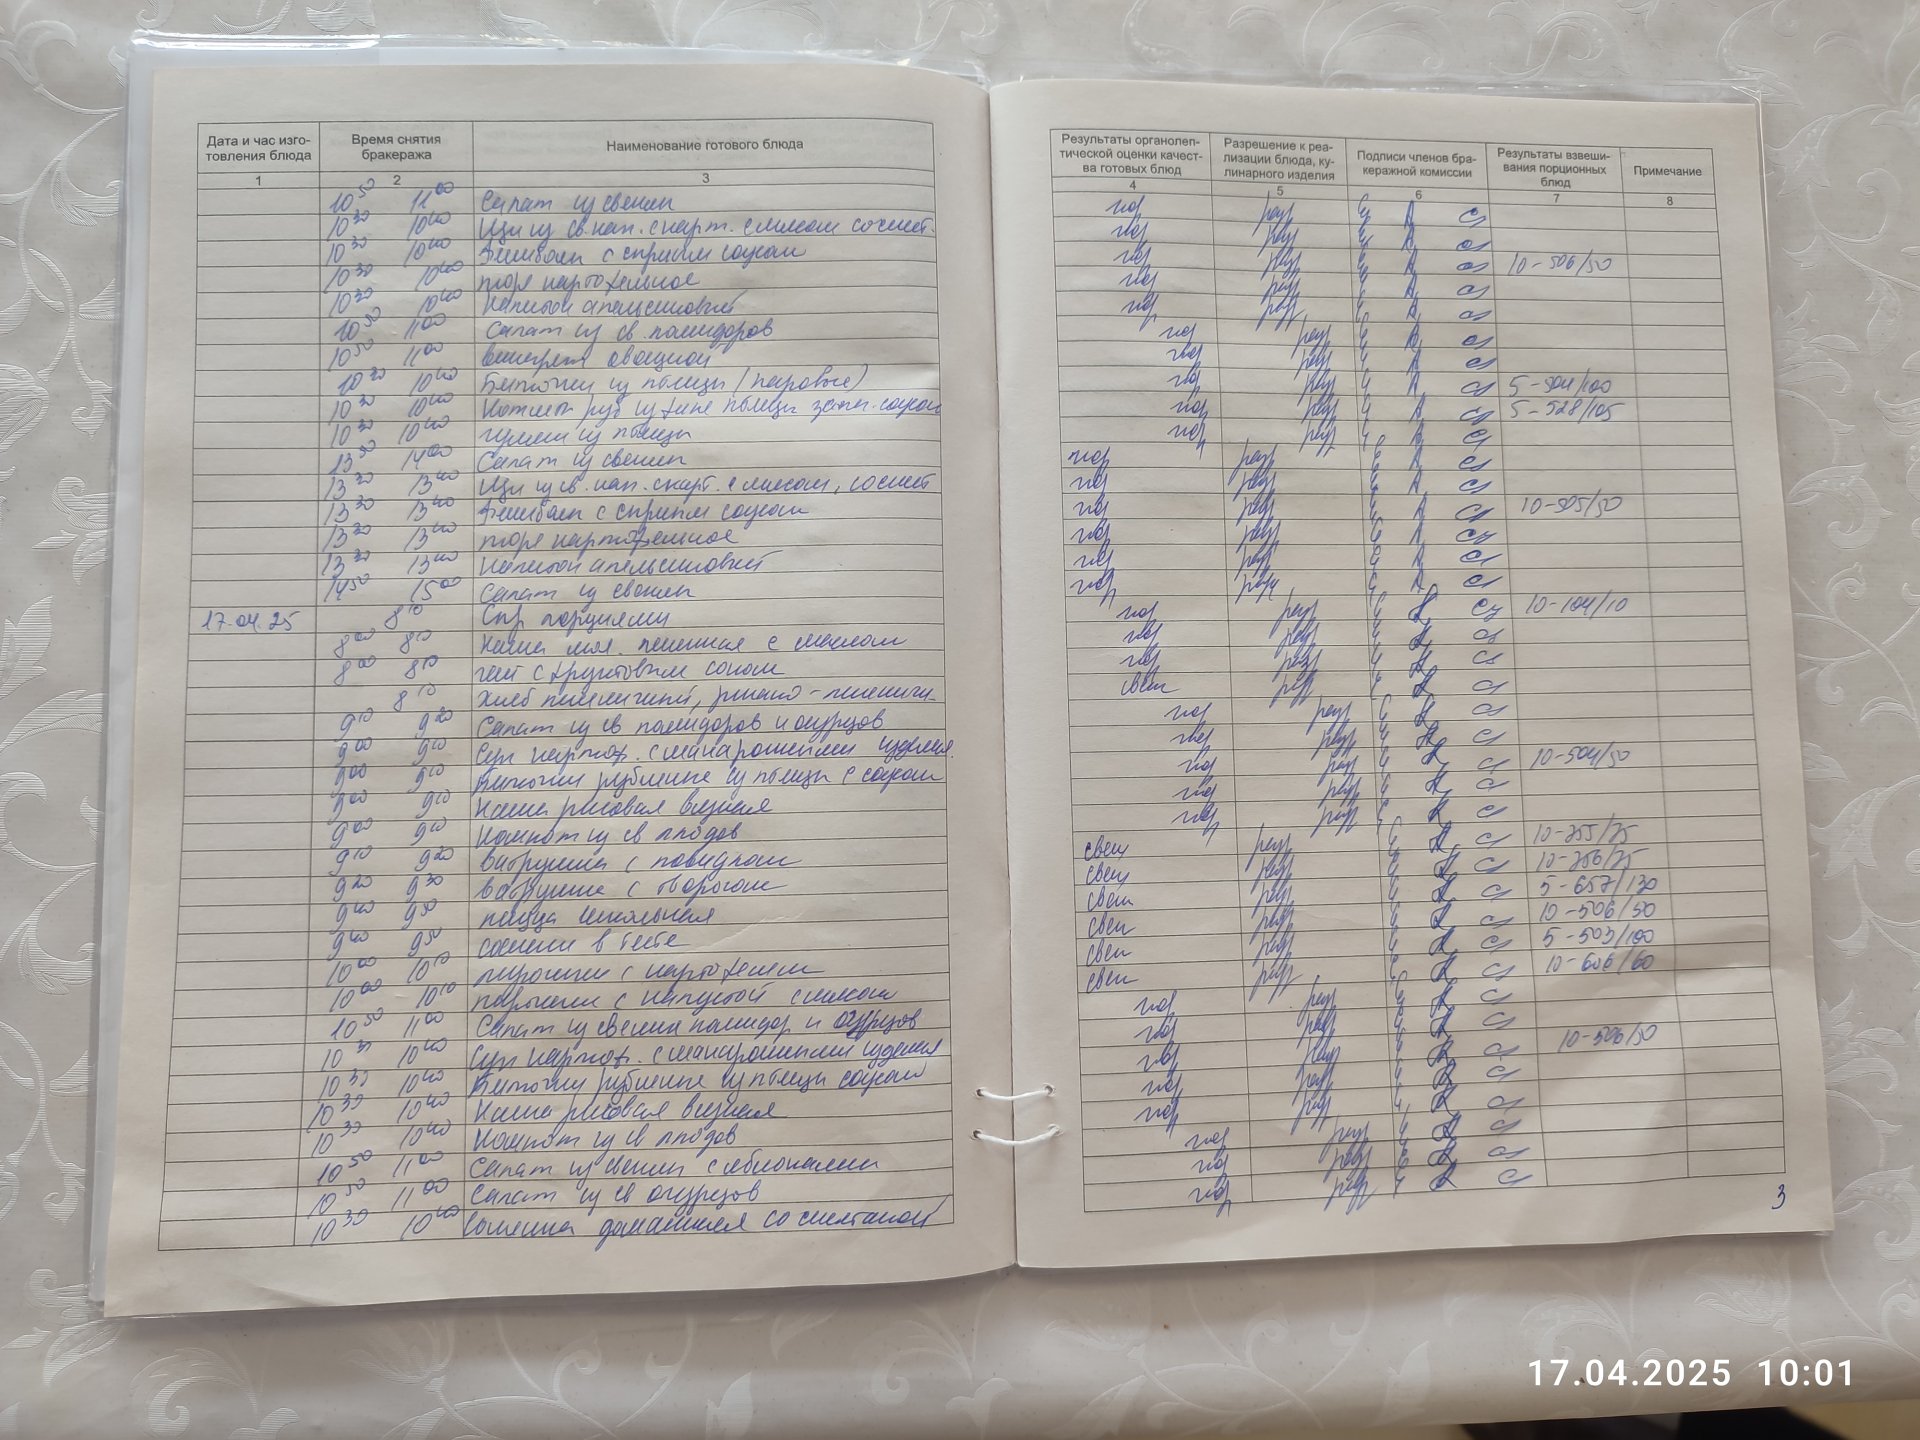 Дата и час изго-
товления блюда
Время снятия
бракеража
Наименование готового блюда
1 2 3
10 50 11 00 Салат из свеклы
10 30 10 40 Щи из св. кап. с карт. с мясом со смет.
10 30 10 40 с соусом
10 30 10 40 пюре картофельное
10 30 10 40 напиток апельсиновый
10 50 11 00 Салат из св. помидоров
10 50 11 00 винегрет овощной
10 30 10 40 Биточки из птицы (паровые)
10 30 10 40 Котлета руб из филе птицы соусом
10 30 10 40 из птицы
13 50 14 00 Салат из свеклы
13 30 13 40 Щи из св. кап. с карт. с мясом, со смет
13 30 13 40 с соусом
13 30 13 40 пюре картофельное
13 30 13 40 напиток апельсиновый
14 50 15 00 Салат из свеклы
17.04.25 8 10 Сыр порциями
8 00 8 10 Каша мол. пшенная с маслом
8 00 8 10 чай с фруктовым соком
8 10 Хлеб пшеничный, ржано-пшенич
9 10 9 20 Салат из св помидоров и огурцов
9 00 9 10 Суп картоф. с макаронными изделия.
9 00 9 10 Биточки рубленые из птицы с соусом
9 00 9 10 Каша рисовая вязкая
9 00 9 10 Компот из св плодов
9 10 9 20 ватрушка с повидлом
9 20 9 30 ватрушка с творогом
9 40 9 50 пицца школьная
9 40 9 50 сосиски в тесте
10 00 10 10 пирожки с картофелем
10 00 10 10 пирожки с капустой с мясом
10 50 11 00 Салат из свежих помидор и огурцов
10 30 10 40 Суп картоф. с макаронными изделия
10 30 10 40 Биточки рубленые из птицы соусом
10 30 10 40 Каша рисовая вязкая
10 30 10 40 Компот из св плодов
10 50 11 00 Салат из свеклы с яблоками
10 50 11 00 Салат из св огурцов
10 30 10 40 домашняя со сметаной
Результаты органолеп-
тической оценки качест-
ва готовых блюд
Разрешение к реа-
лизации блюда, ку-
линарного изделия
Подписи членов бра-
керажной комиссии
Результаты взвеши-
вания порционных
блюд
Примечание
4 5 6 7 8
гот разр
гот разр
гот разр 10-506/50
гот разр
гот разр
гот разр
гот разр
гот разр 5-504/100
гот разр 5-528/105
гот разр
гот разр
гот разр
гот разр 10-505/50
гот разр
гот разр
гот разр
гот разр 10-104/10
гот разр
гот разр
свеж разр
гот разр
гот разр
гот разр 10-504/50
гот разр
гот разр
свеж разр 10-755/75
свеж разр 10-756/75
свеж разр 5-657/130
свеж разр 10-506/50
свеж разр 5-503/100
свеж разр 10-606/60
гот разр
гот разр
гот разр 10-506/50
гот разр
гот разр
гот разр
гот разр
гот разр
3
17.04.2025 10:01